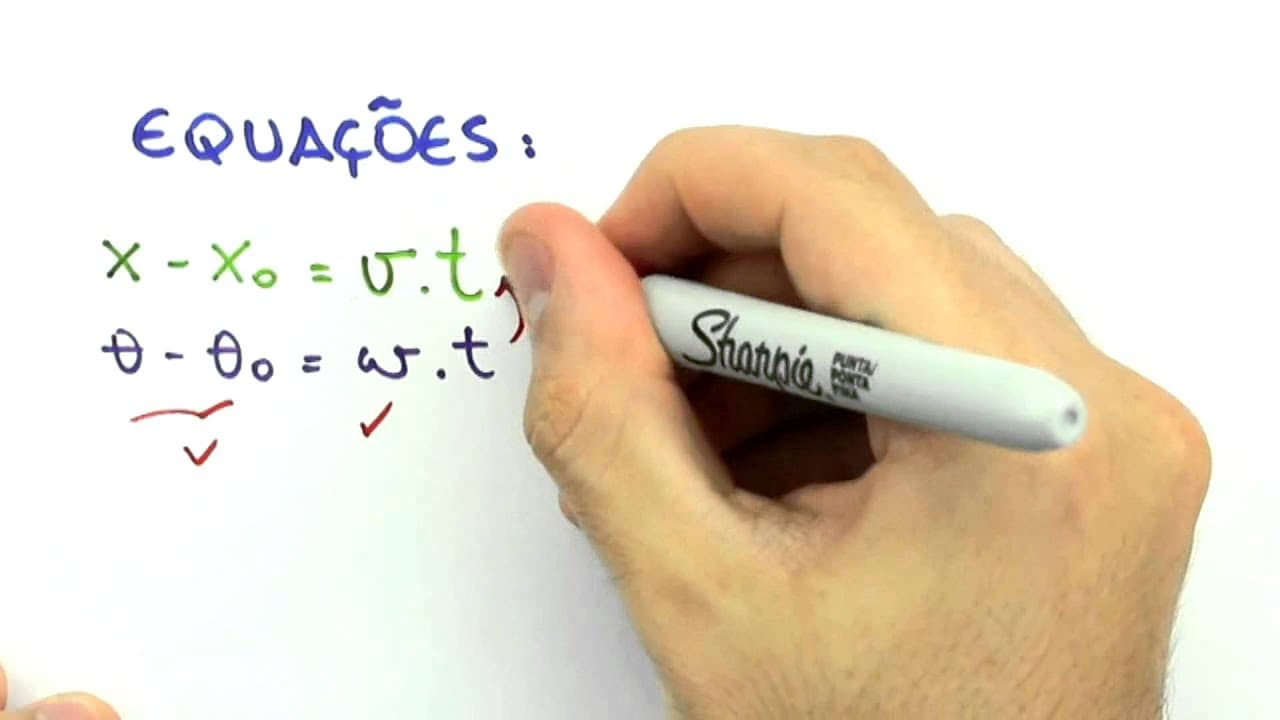 EQUAÇÕES:
x - x₀ = v.t
θ - θ₀ = ω.t
Sharpie
PUNTA/
PONTA
FINA